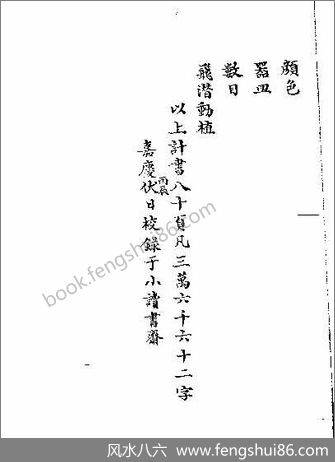 顔色
噐皿
數目
飛潛動植
以上計書八十頁凡三萬六千六十二字
嘉慶丙辰伏日校錄于小讀書齋
book.fengshui86.com
风水八六 www.fengshui86.com